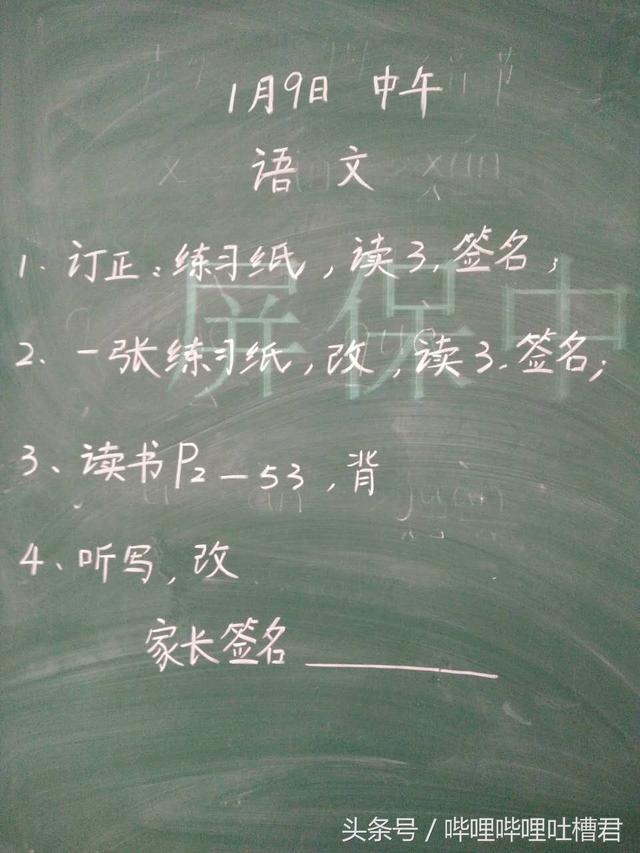 1月9日 中午
语文
1、订正:练习纸,读3,签名;
2、一张练习纸,改,读3、签名;
屏保中
3、读书P2—53,背
4、听写,改
家长签名
头条号 / 哔哩哔哩吐槽君